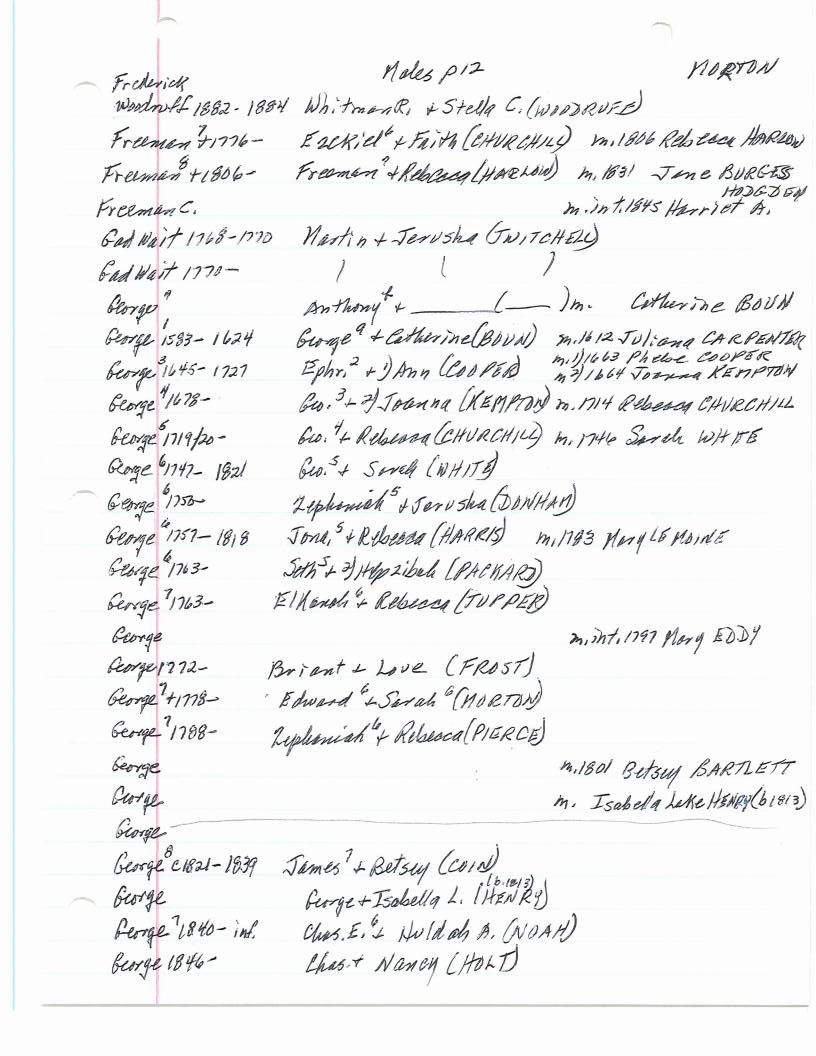 Males p12 MORTON
Frederick
Woodruff 1882-1884 Whitman R. + Stella C. (WOODRUFF)
Freeman⁷ +1776- Ezekiel⁶ + Faith (CHURCHILL) m.1806 Rebecca HARLOW
Freeman⁸ +1806- Freeman⁷ + Rebecca (HARLOW) m.1831 Jane BURGESS
HODGDEN
Freeman C. m.int.1845 Harriet A.
Gad Wait 1768-1770 Martin + Jerusha (TWITCHELL)
Gad Wait 1770- ) ( )
George Anthony + ______ (____) m. Catherine BOUN
George¹ 1583-1624 George + Catherine (BOUN) m.1612 Juliana CARPENTER
m.1) 1663 Phebe COOPER
George³ 1645-1727 Ephr.² + 1) Ann (COOPER) m 2) 1664 Joanna KEMPTON
George⁴ 1678- Geo.³ + 2) Joanna (KEMPTON) m.1714 Rebecca CHURCHILL
George⁵ 1719/20- Geo.⁴ + Rebecca (CHURCHILL) m.1746 Sarah WHITE
George⁶ 1747-1821 Geo.⁵ + Sarah (WHITE)
George⁶ 1750- Zephaniah⁵ + Jerusha (DONHAM)
George⁶ 1757-1818 Jona.⁵ + Rebecca (HARRIS) m.1783 Mary LE MOINE
George⁶ 1763- Seth⁵ + 2) Hepzibah (PACKARD)
George⁷ 1763- Elkanah⁶ + Rebecca (TUPPER)
George m.int.1797 Mary EDDY
George 1772- Briant + Love (FROST)
George⁷ +1778- Edward⁶ + Sarah⁶ (MORTON)
George⁷ 1788- Zephaniah⁶ + Rebecca (PIERCE)
George m.1801 Betsey BARTLETT
George m. Isabella Lake HENRY (b1813)
George
George⁸ c1821-1839 James⁷ + Betsey (COIN)
(b.1813)
George George + Isabella L. (HENRY)
George⁷ 1840-inf. Chas. E.⁶ + Huldah A. (NOAH)
George 1846- Chas. + Nancy (HOLT)